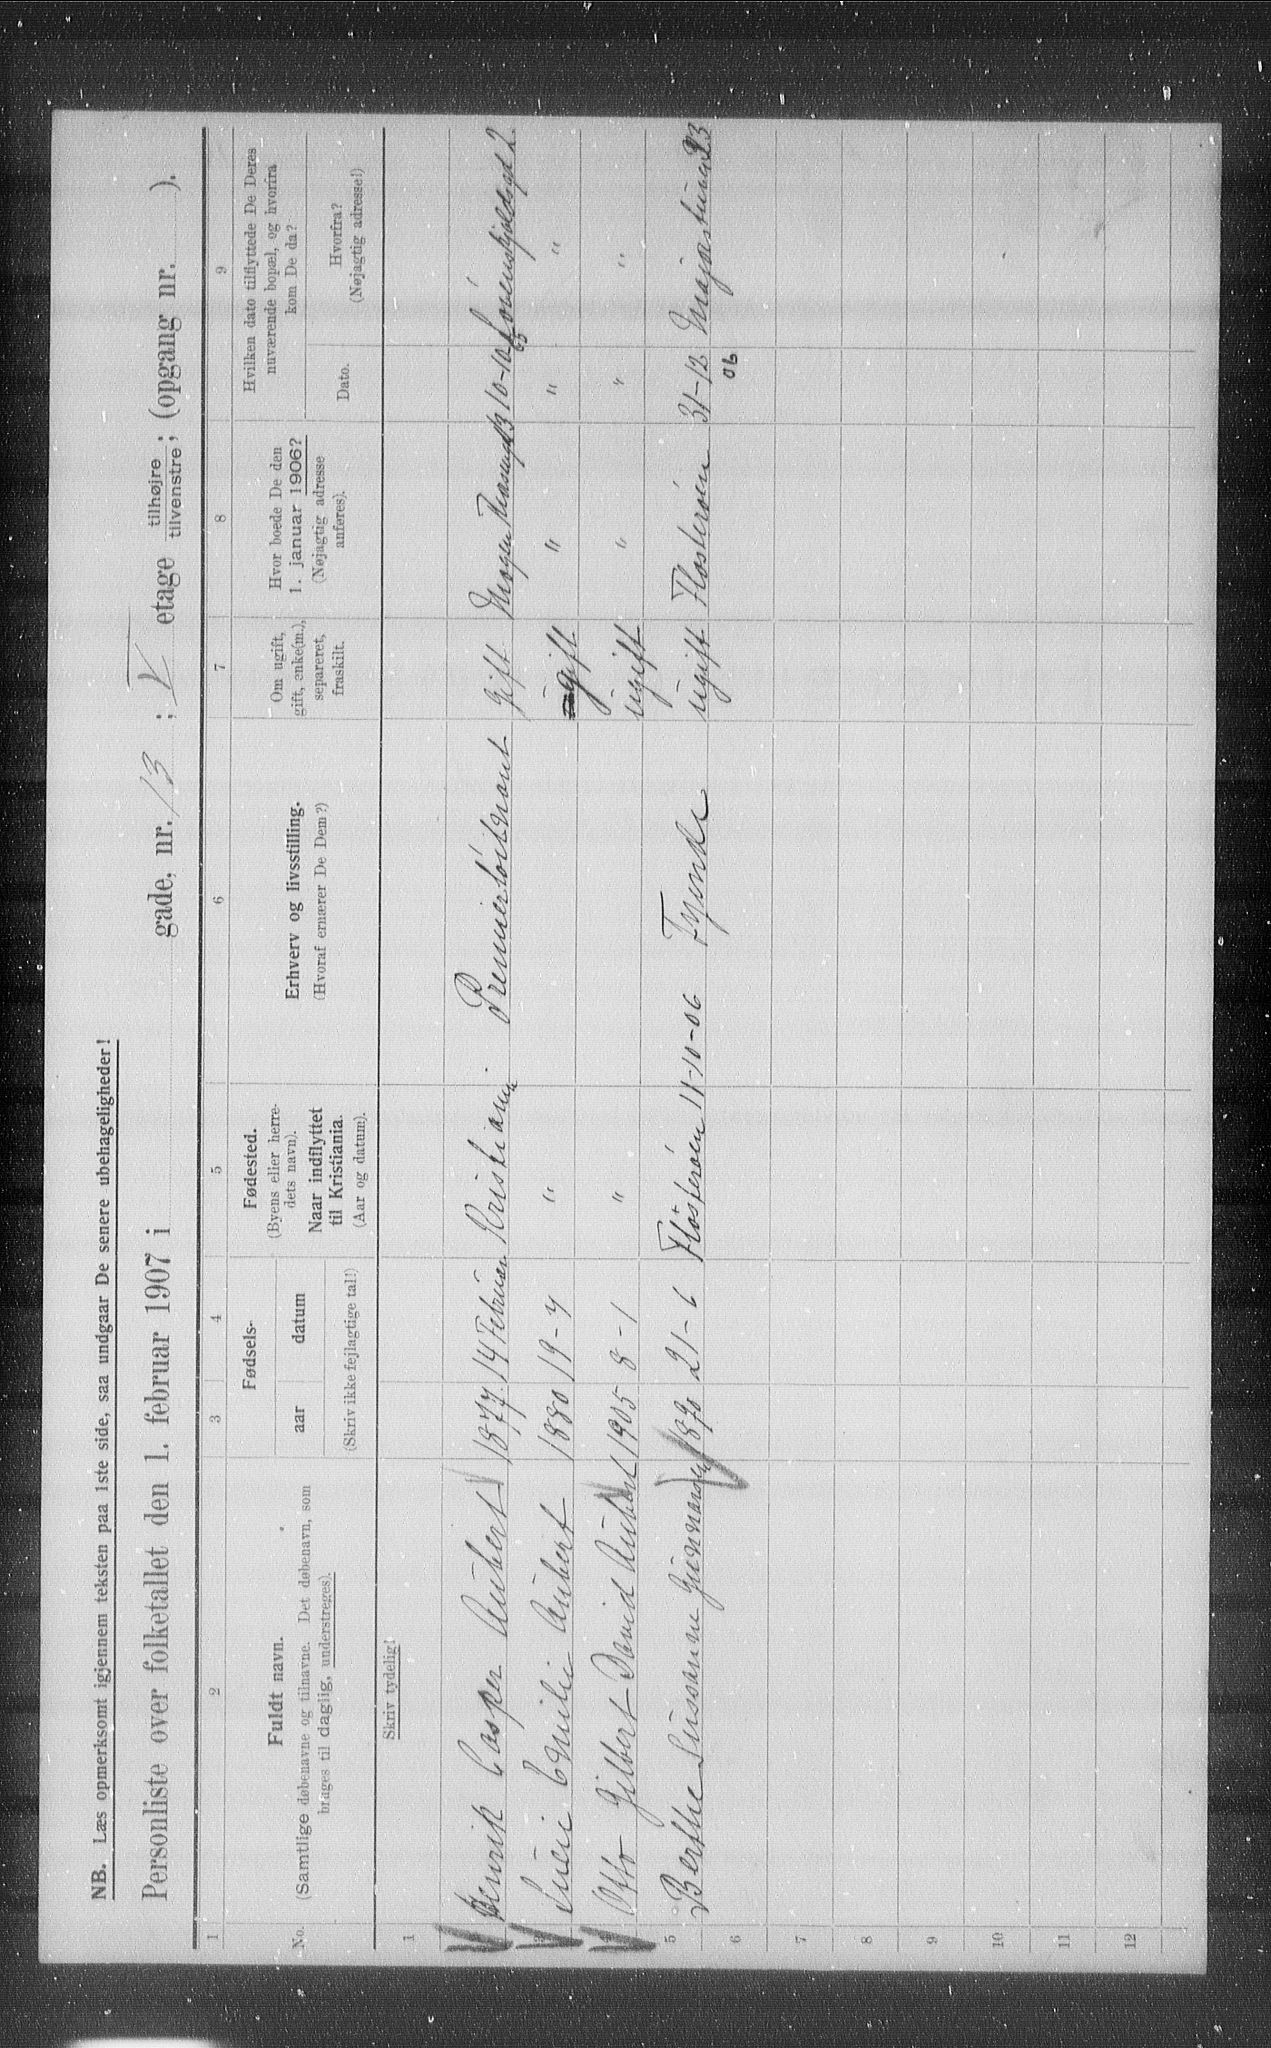 NB. Læs opmerksomt igjennem teksten paa 1ste side, saa undgaar De senere ubehageligheder!
Personliste over folketallet den 1. februar 1907 i gade, nr. 13; V etage tilhøjre tilvenstre; (opgang nr. ).
1 2 3 4 5 6 7 8 9
No.
Fuldt navn.
(Samtlige døbenavne og tilnavne. Det døbenavn, som
bruges til daglig, understreges).
Fødsels-
aar datum
(Skriv ikke fejlagtige tal!)
Fødested.
(Byens eller herre-
dets navn).
Naar indflyttet
til Kristiania.
(Aar og datum).
Erhverv og livsstilling.
(Hvoraf ernærer De Dem?)
Om ugift,
gift, enke(m.),
separeret,
fraskilt.
Hvor boede De den
1. januar 1906?
(Nøjagtig adresse
anføres).
Hvilken dato tilflyttede De Deres
nuværende bopæl, og hvorfra
kom De da?
Dato.
Hvorfra?
(Nøjagtig adresse!)
Skriv tydelig!
1
Henrik Casper Aubert 1877 14 Februar Kristiania Premierløitnant gift 10-10 05 Løvenskjoldsgd 2
3 Lucie Emilie Aubert 1880 19-7 " gift " " "
4 Otto Gilbert David Aubert 1905 8-1 " ugift " " "
5 Berthe Sussanne Gunnarsen 1870 21-6 Flosterøen 11-10-06 Tyende ugift Flosterøen 31-12 06 Majorstuveien 23
6
7
8
9
10
11
12